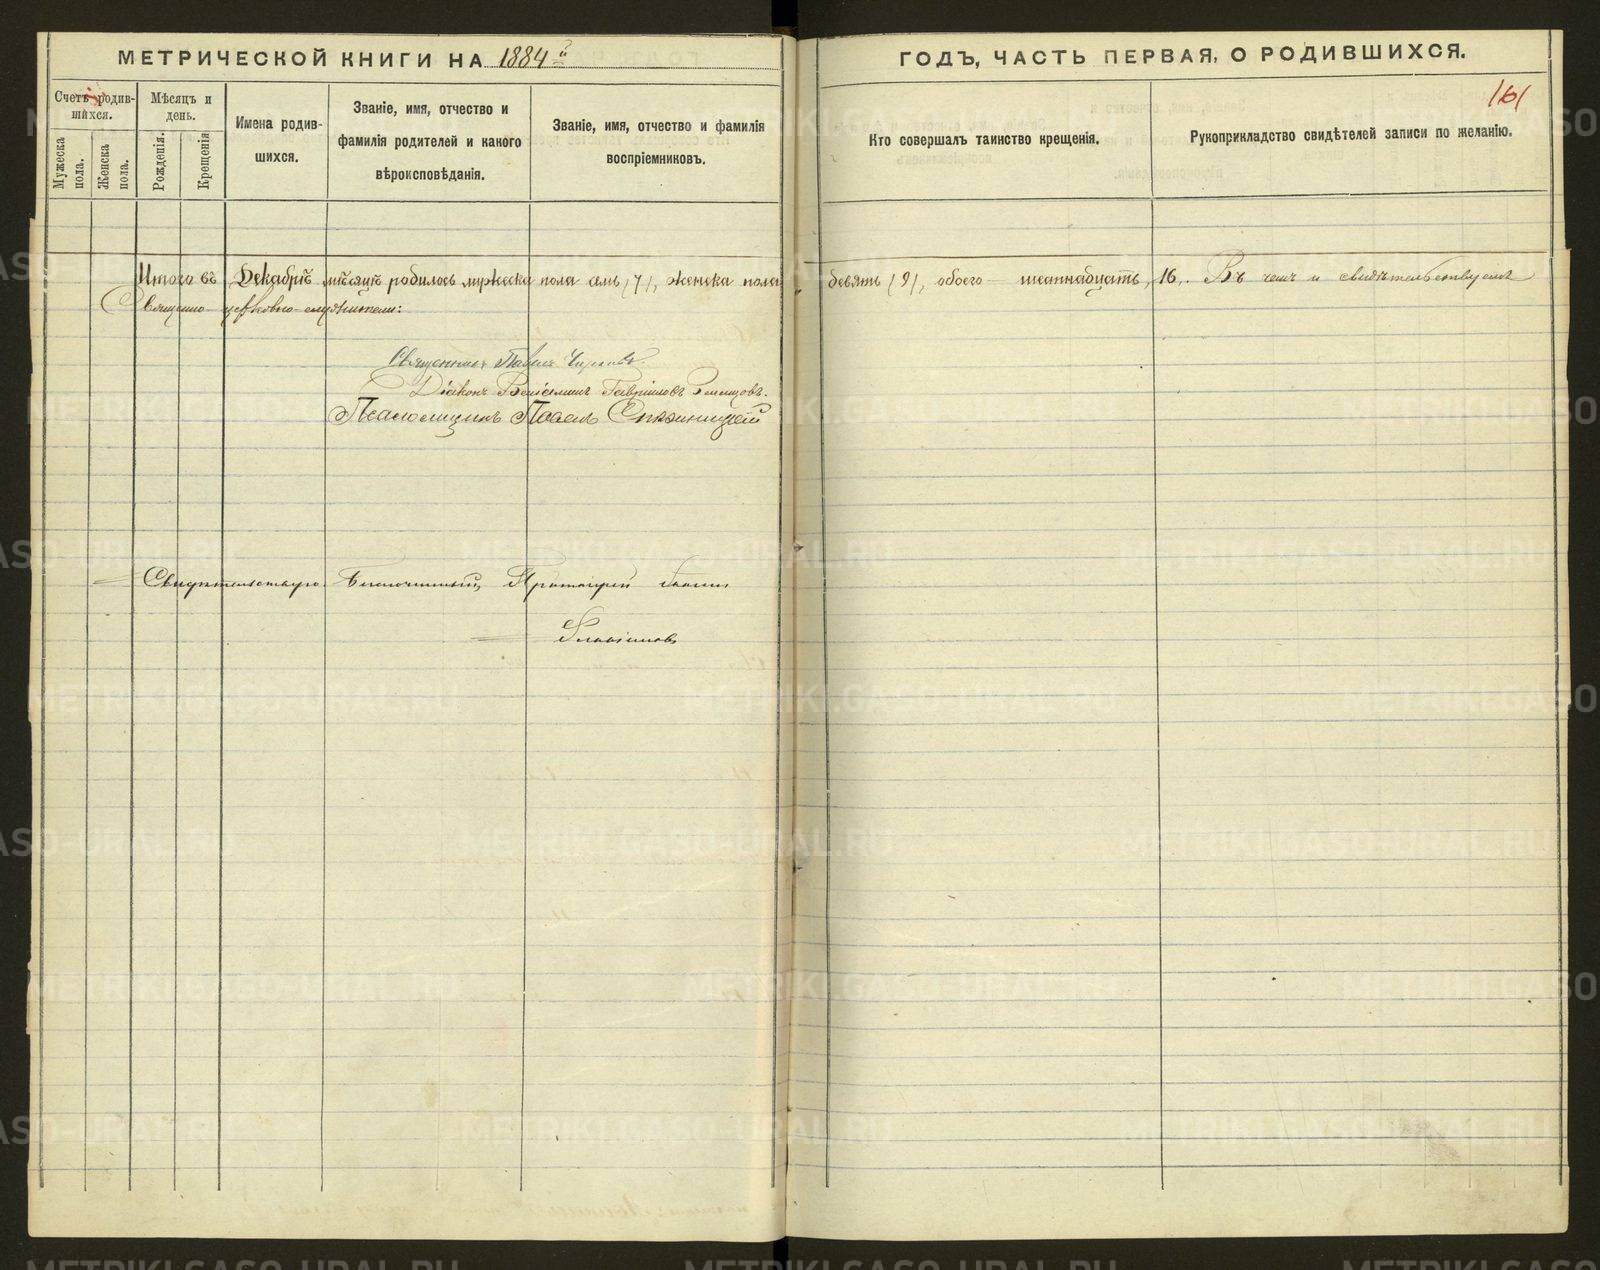 МЕТРИЧЕСКОЙ КНИГИ НА 1884й
ГОДЪ, ЧАСТЬ ПЕРВАЯ, О РОДИВШИХСЯ.
161
Счетъ родив-
шихся.
Мужеска
пола.
Женска
пола.
Мѣсяцъ и
день.
Рожденія.
Крещенія
Имена родив-
шихся.
Званіе, имя, отчество и
фамилія родителей и какого
вѣроисповѣданія.
Званіе, имя, отчество и фамилія
воспріемниковъ.
Кто совершалъ таинство крещенія.
Рукоприкладство свидѣтелей записи по желанію.
Итого въ Декабрѣ мѣсяцѣ родилось мужеска пола семь (7), женска пола девять (9), обоего шестнадцать, 16,. Въ чемъ и свидѣтельствуемъ
Священно церковно-служители:
Священникъ Павелъ
Діаконъ Гавріиловъ
Псаломщикъ Павелъ
Свидѣтельствую. Благочинный, Протоіерей
METRIKI.GASO-URAL.RU